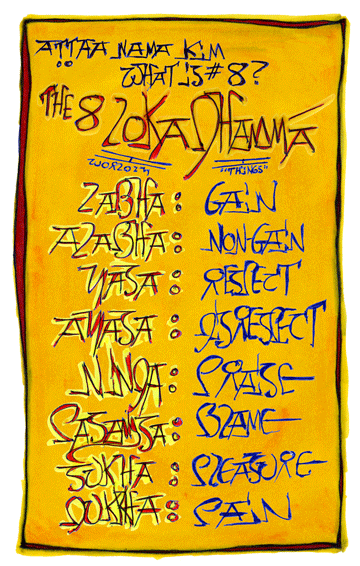 AṬṬHA NAMA KIM
WHAT IS # 8?
THE 8 LOKA DHAMMA
WORLDLY "THINGS"
LABHA: GAIN
ALABHA: NON-GAIN
YASA: RESPECT
AYASA: DISRESPECT
NINDA: PRAISE
PASAMSA: BLAME
SUKHA: PLEASURE
DUKKHA: PAIN